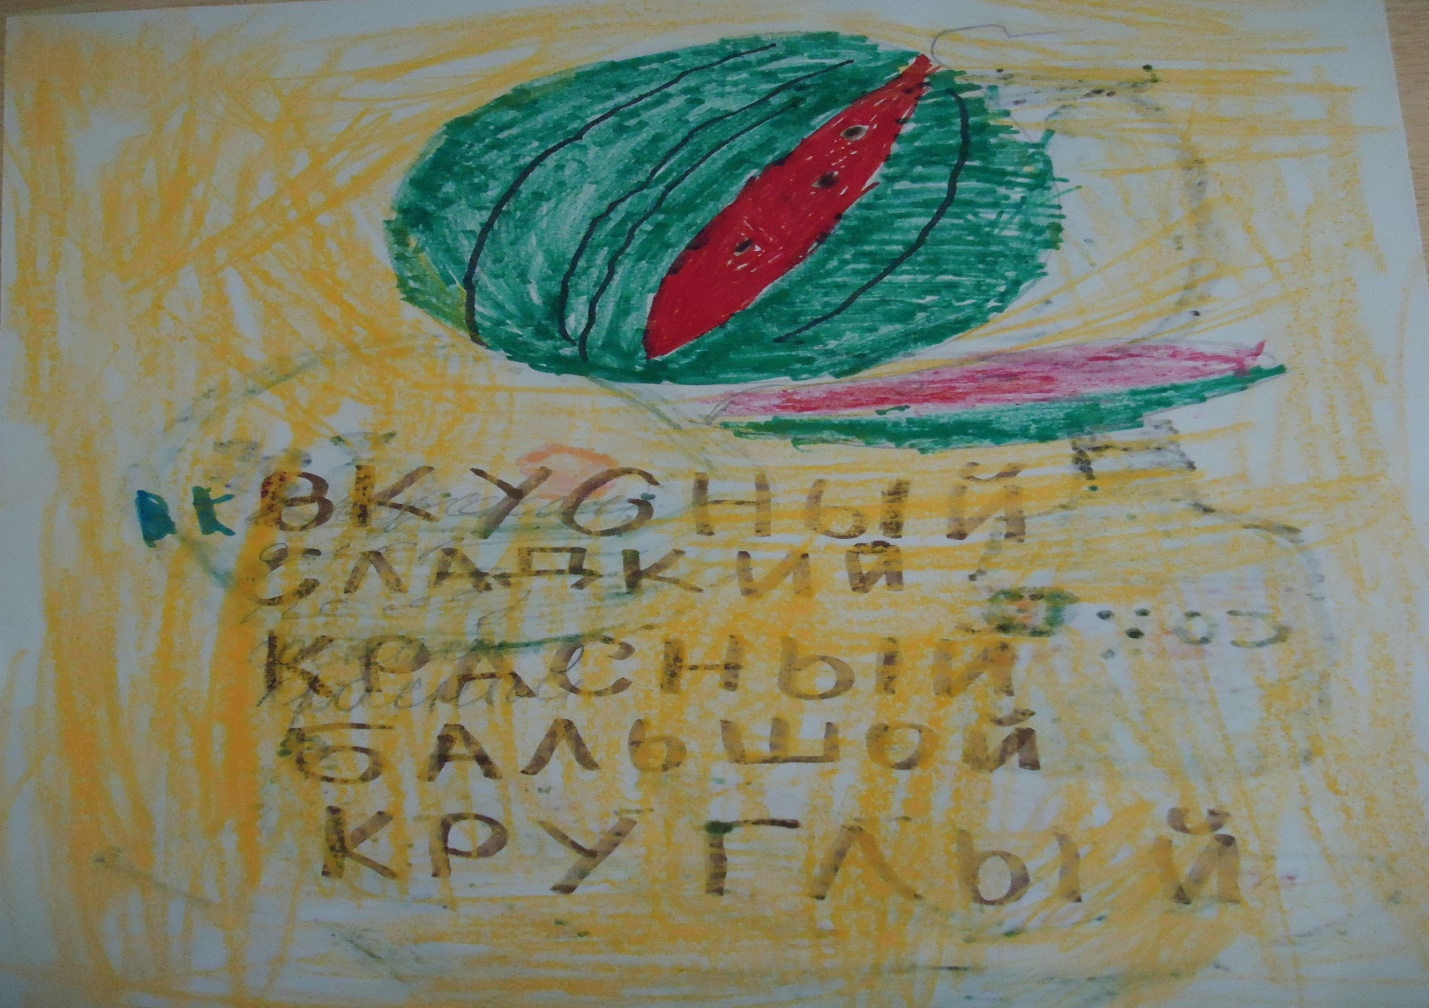 ВК ВКУСНЫЙ
СЛАДКИЙ
КРАСНЫЙ
БАЛЬШОЙ
КРУГЛЫЙ